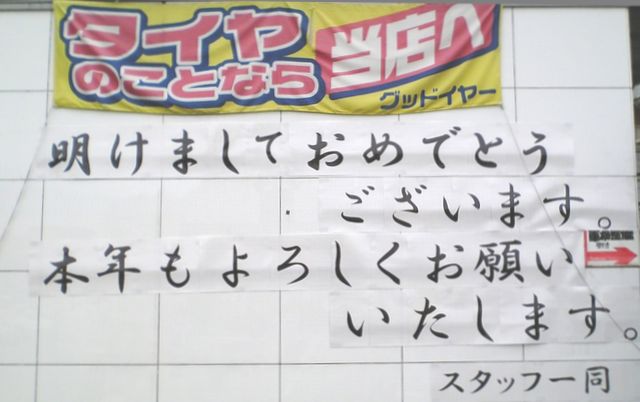 タイヤ
のことなら
当店へ
グッドイヤー
明けましておめでとう
ございます。
本年もよろしくお願い
いたします。
スタッフ一同